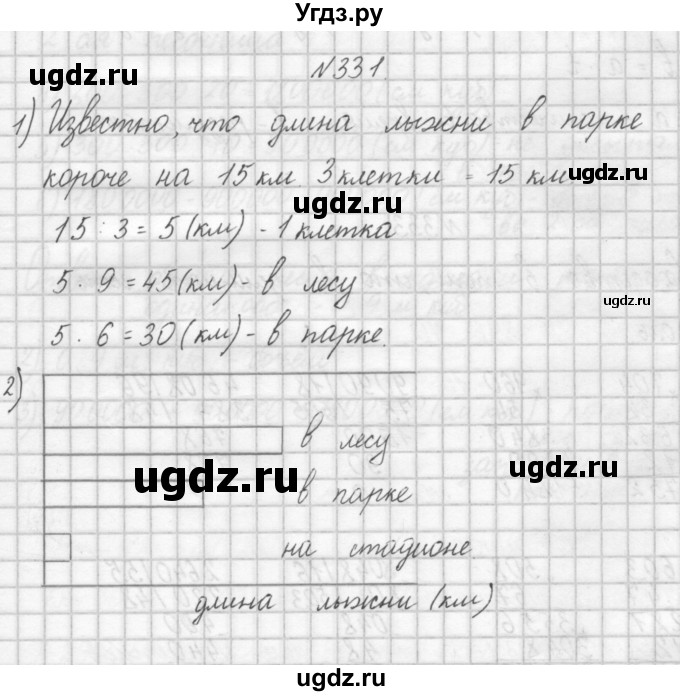 Угдз.ру
№331.
1) Известно, что длина лыжни в парке
короче на 15 км. 3 клетки = 15 км
ugdz.ru
ugdz.ru
15 : 3 = 5 (км) - 1 клетка
5 · 9 = 45 (км) - в лесу
ugdz.ru
5 · 6 = 30 (км) - в парке.
2)
в лесу
ugdz.ru
ugdz.ru
в парке
на стадионе.
длина лыжни (км)
ugdz.ru
ugdz.ru